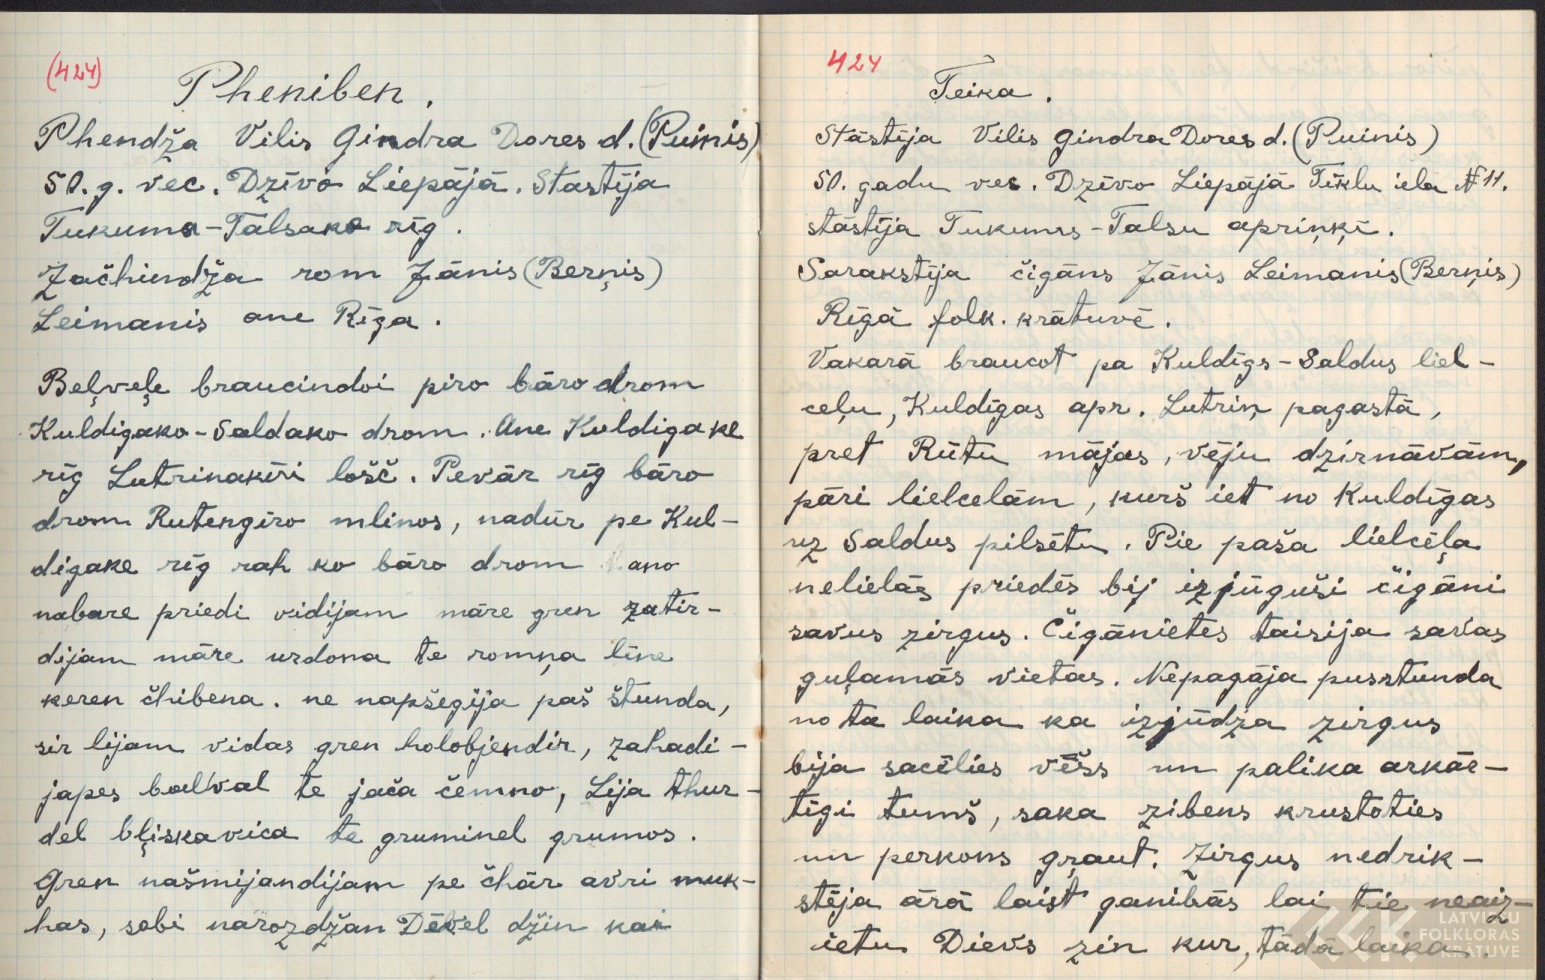 (424)
Pheniben.
Phendža Vilis Gindra Dores d. (Puinis)
50. g. vec. Dzīvo Liepājā. Stāstīja
Tukuma-Talsako rīg.
Začhindža rom Jānis (Berņis)
Leimanis ane Rīga.
Beļveļe braucindoi piro bāro drom
Kuldigako-Saldako drom. Ane Kuldigake
rīg Lutrinakīri lošč. Pevār rīg bāro
drom Rutengīro mlinos, nadūr pe Kul-
digake rīg rah ko bāro drom ano
nabare priedi vidijam māre gren zatir-
dijam māre urdona te romņa līne
keren čhibena. ne napšegija paš štunda,
sir lijam vidas gren holobjendir, zahadi-
japes balval te jača čemno, Lija thur-
del bļiskavica te gruminel grumos.
Gren našmijandijam pe čhār avri muk-
has, sobi narozdžan Dēvel džin kai
424
Teika.
Stāstīja Vilis Gindra Dores d. (Puinis)
50. gadu vec. Dzīvo Liepājā Tīklu ielā № 11.
stāstīja Tukums-Talsu apriņķī.
Sarakstīja čigāns Jānis Leimanis (Berņis)
Rīgā folk. krātuvē.
Vakarā braucot pa Kuldīgs-Saldus liel-
ceļu, Kuldīgas apr. Lutriņ pagastā,
pret Rūtu mājas, vēju dzirnāvām,
pāri lielcelam, kurš iet no Kuldīgas
uz Saldus pilsētu. Pie paša lielcēļa
nelielās priedēs bij izjūguši čigāni
savus zirgus. Čigānietes taisija savas
guļamās vietas. Nepagāja pusstunda
no ta laika ka izjūdza zirgus
bija sacēlies vēšs un palika arkār-
tīgi tumš, saka zibens krustoties
un perkons gŗaut. Zirgus nedrik-
stēja ārā laist ganībās lai tie neaiz-
ietu Dievs zin kur, tādā laikā.
LATVIEŠU
FOLKLORAS
KRĀTUVE